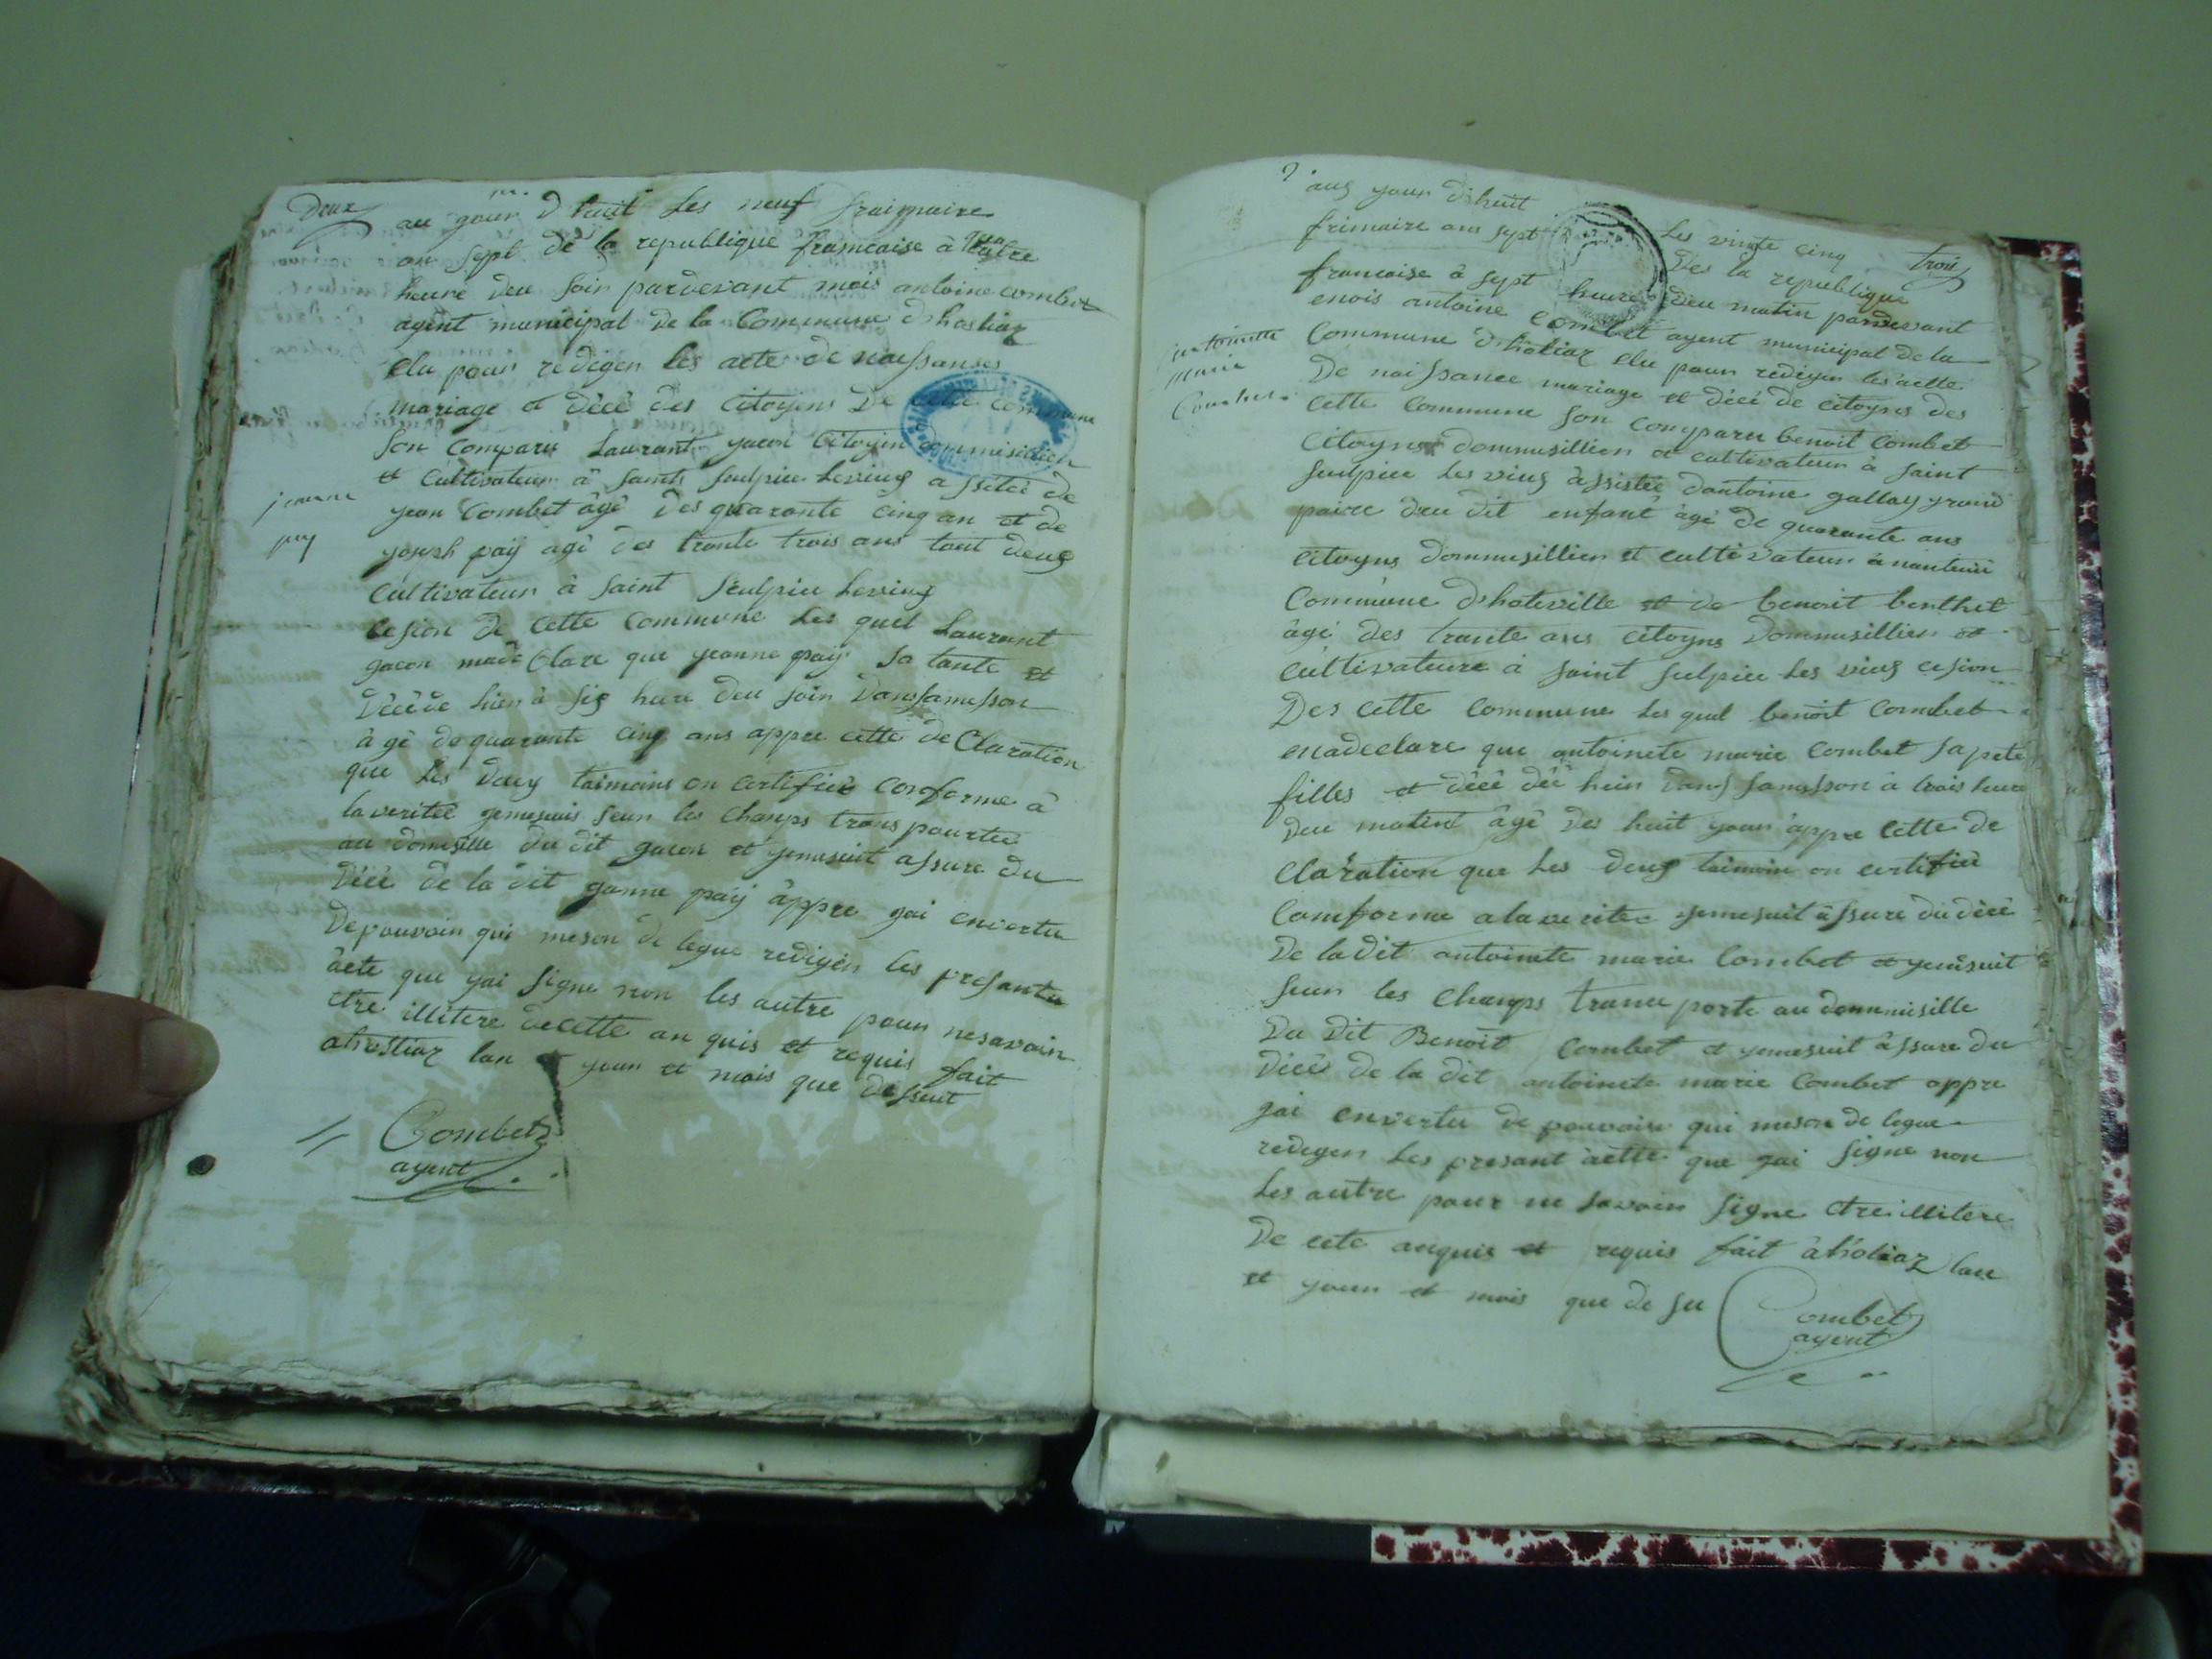 Deux
au jour d huit les neuf fraimaire
an sept de la republique francaise à quatre
heure deu soir pardevant mois antoine combet
agent municipal de la Commune dhostiaz
elu pour redigen les acte de naissanses
mariage et décé des citoyens De cette commune
son comparu Laurant gacon citoyen dommisilien
et cultivateur à saint sulpice levieux assiteé de
jeanne
paij
jean Combet âgé des quarante cinq an et de
joseph paij agé des trante trois ans tout deux
cultivateur à saint seulpice levieux
cesion de cette Commune les quel Laurant
gacon made Clare que jeanne paij sa tante et
décéde hier à six hure deu soir Dans samesson
âgé de quarante cinq ans appre cette de Claration
que les deux taimoins on certifiée conforme à
laveritée jemesuis seur les champs trans pourtée
au domisille du dit gacon et jemesuit assure du
décé de la dit janne paij âppre jai envertu
De pouvoir qui meson de legue redigén les presante
âcte que jai signe non les autre pour nesavoir
etre illitere decette an quis et requis fait
ahostiaz lan et jour et mois que dessent
Combet
agent
auz jour dhuit les vinte cinq
trois
frimaire ans sept Des la republique
francaise à sept heure deu matin pardevant
emois antoine Combet agent municipal de la
antoinette
marie
Combet
Commune dhotiaz elu pour redigen les'actte
De naissance mariage et décé de citoyens des
cette Commune son comparu benoit Combet
citoyens dommisillien et cultivateur à saint
seulpice les vieux assistée dantoine gallay grand
paire deu dit enfant âgé de quarante ans
citoyns dommusillien et cultivateur à nantuii
Commune dhoteville et de benoit berthet
âgé des trante ans citoyns dommusillien et
cultivateure à saint sulpice les vieux cesion
Des cette Commune les quel benoit Combet
enadeclare que antoinete marie Combet sa pete
filles et décé dée hier dans samesson à trois heure
deu matint âgé des huit jour appre cette de
claration que les deux taimoin on certifiée
Comforme a laveritée jemesuit assure du décé
De la dit antoinete marie Combet et jemesuit
seur les champs transe porte au dommisille
Du dit Benoit Combet et jemesuit assure du
décés de la dit antoinete marie Combet appre
jai envertu de pouvoir qui meson de legue
redigen les presant actte que jai signe non
les autre pour ne savoir signe etre illitere
De cete anquis et requis fait àhotiaz lan
et jour et mois que de su
Combet
agent